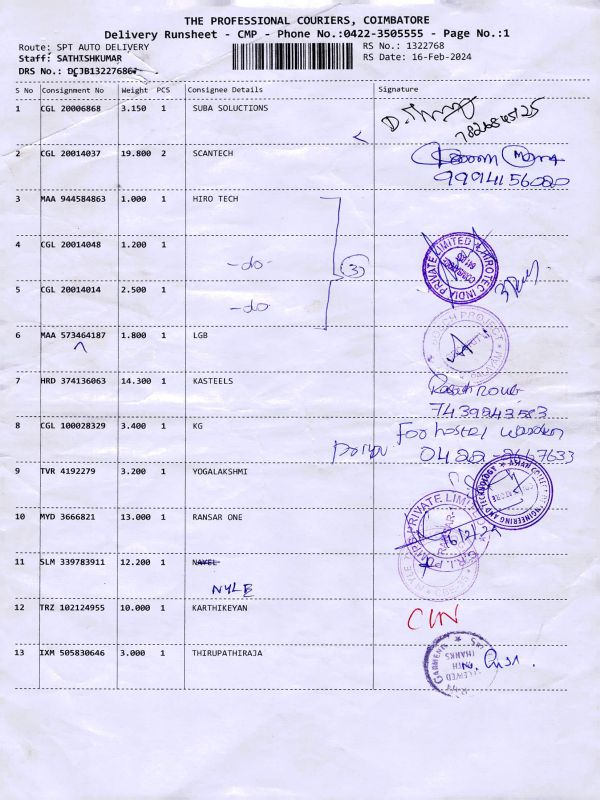 THE PROFESSIONAL COURIERS, COIMBATORE
Delivery Runsheet - CMP - Phone No.:0422-3505555 - Page No.:1
Route: SPT AUTO DELIVERY RS No.: 1322768
Staff: SATHISHKUMAR RS Date: 16-Feb-2024
DRS No.:
S No Consignment No Weight PCS Consignee Details Signature
1 CGL 20006868 3.150 1 SUBA SOLUCTIONS
2 CGL 20014037 19.800 2 SCANTECH
9994156080
3 MAA 944584863 1.000 1 HIRO TECH
4 CGL 20014048 1.200 1
-do- 3
HIROTEC INDIA PRIVATE LIMITED
5 CGL 20014014 2.500 1
-do
6 MAA 573464187 1.800 1 LGB
7 HRD 374136063 14.300 1 KASTEELS
7439843583
8 CGL 100028329 3.400 1 KG
For hostel warden
0422-2667633
9 TVR 4192279 3.200 1 YOGALAKSHMI
10 MYD 3666821 13.000 1 RANSAR ONE
11 SLM 339783911 12.200 1 NAYEL
NYLE
12 TRZ 102124955 10.000 1 KARTHIKEYAN
13 IXM 505830646 3.000 1 THIRUPATHIRAJA